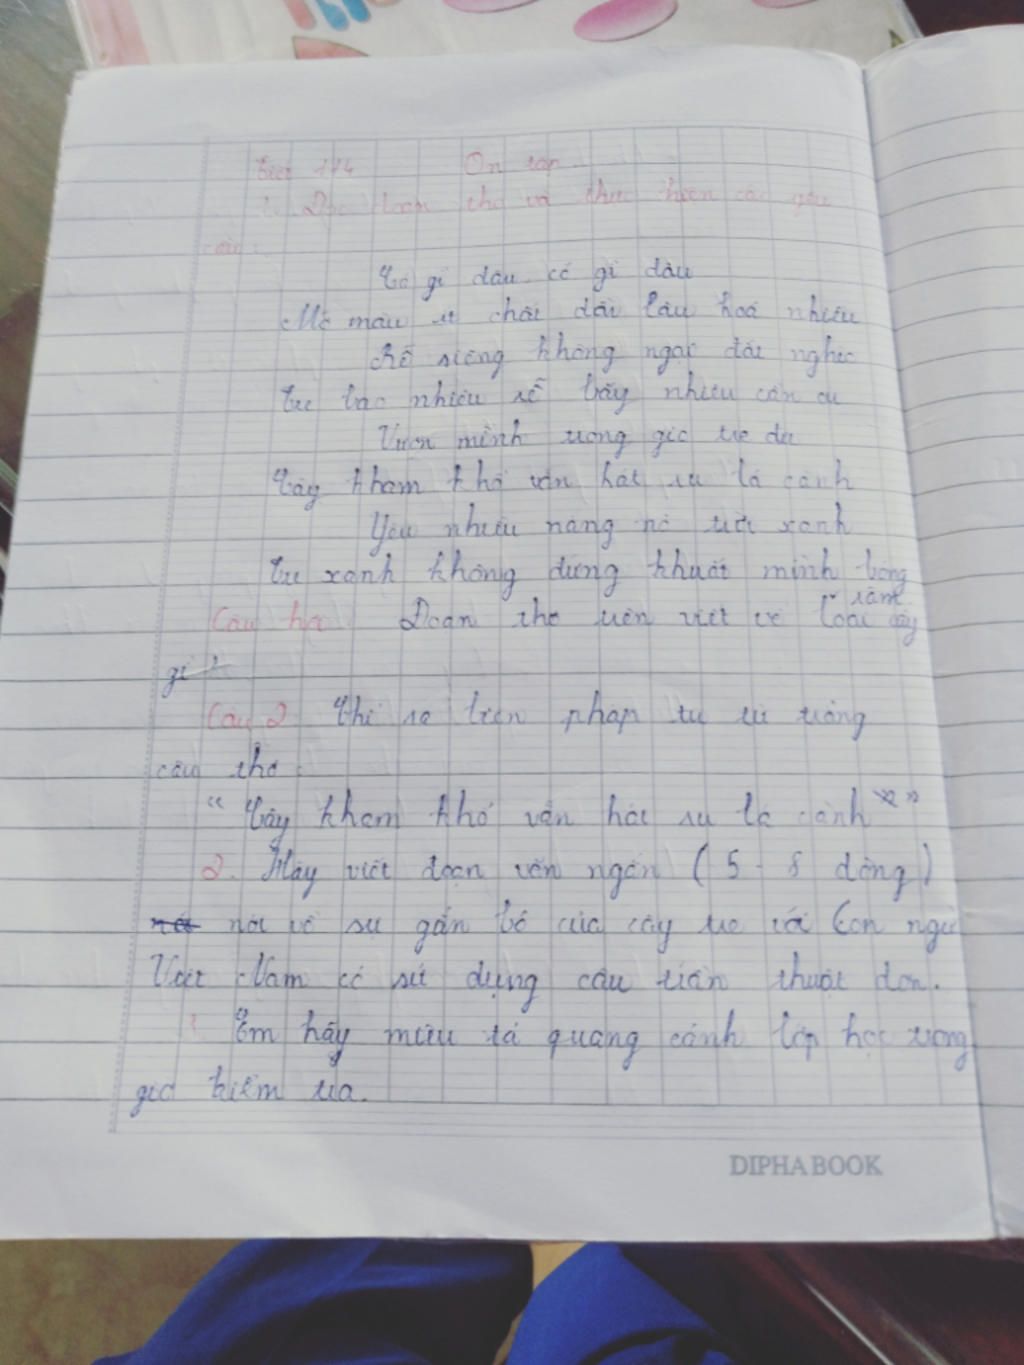 Tiết 114 Ôn tập
1. Đọc đoạn thơ và thực hiện các yêu
cầu:
Có gì đâu có gì đâu
Mỡ màu ít chất dồn lâu hoá nhiều
Rễ siêng không ngại đất nghèo
Tre bao nhiêu rễ bấy nhiêu cần cù
Vươn mình trong gió tre đu
Cây kham khổ vẫn hát ru lá cành
Yêu nhiều nắng nỏ trời xanh
Tre xanh không đứng khuất mình bóng
râm
Câu hỏi Đoạn thơ trên viết về loài cây
gì?
Câu 2 Chỉ ra biện pháp tu từ trong
câu thơ
"Cây kham khổ vẫn hát ru lá cành"
2. Hãy viết đoạn văn ngắn (5-8 dòng)
nói về sự gắn bó của cây tre với con ngư
Việt Nam có sử dụng câu trần thuật đơn.
Em hãy miêu tả quang cảnh lớp học trong
giờ kiểm tra.
DIPHABOOK